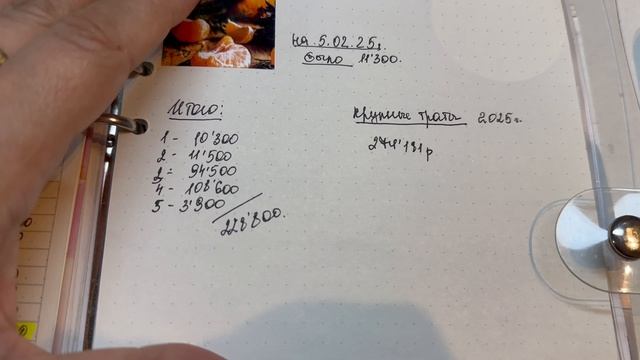 на 5.02.25г.
было 11'300.
Итого:
1 - 10'300
2 - 11'500
3 - 94'500
4 - 108'600
5 - 3'900
228'800.
Крупные траты 2025г.
274'131р